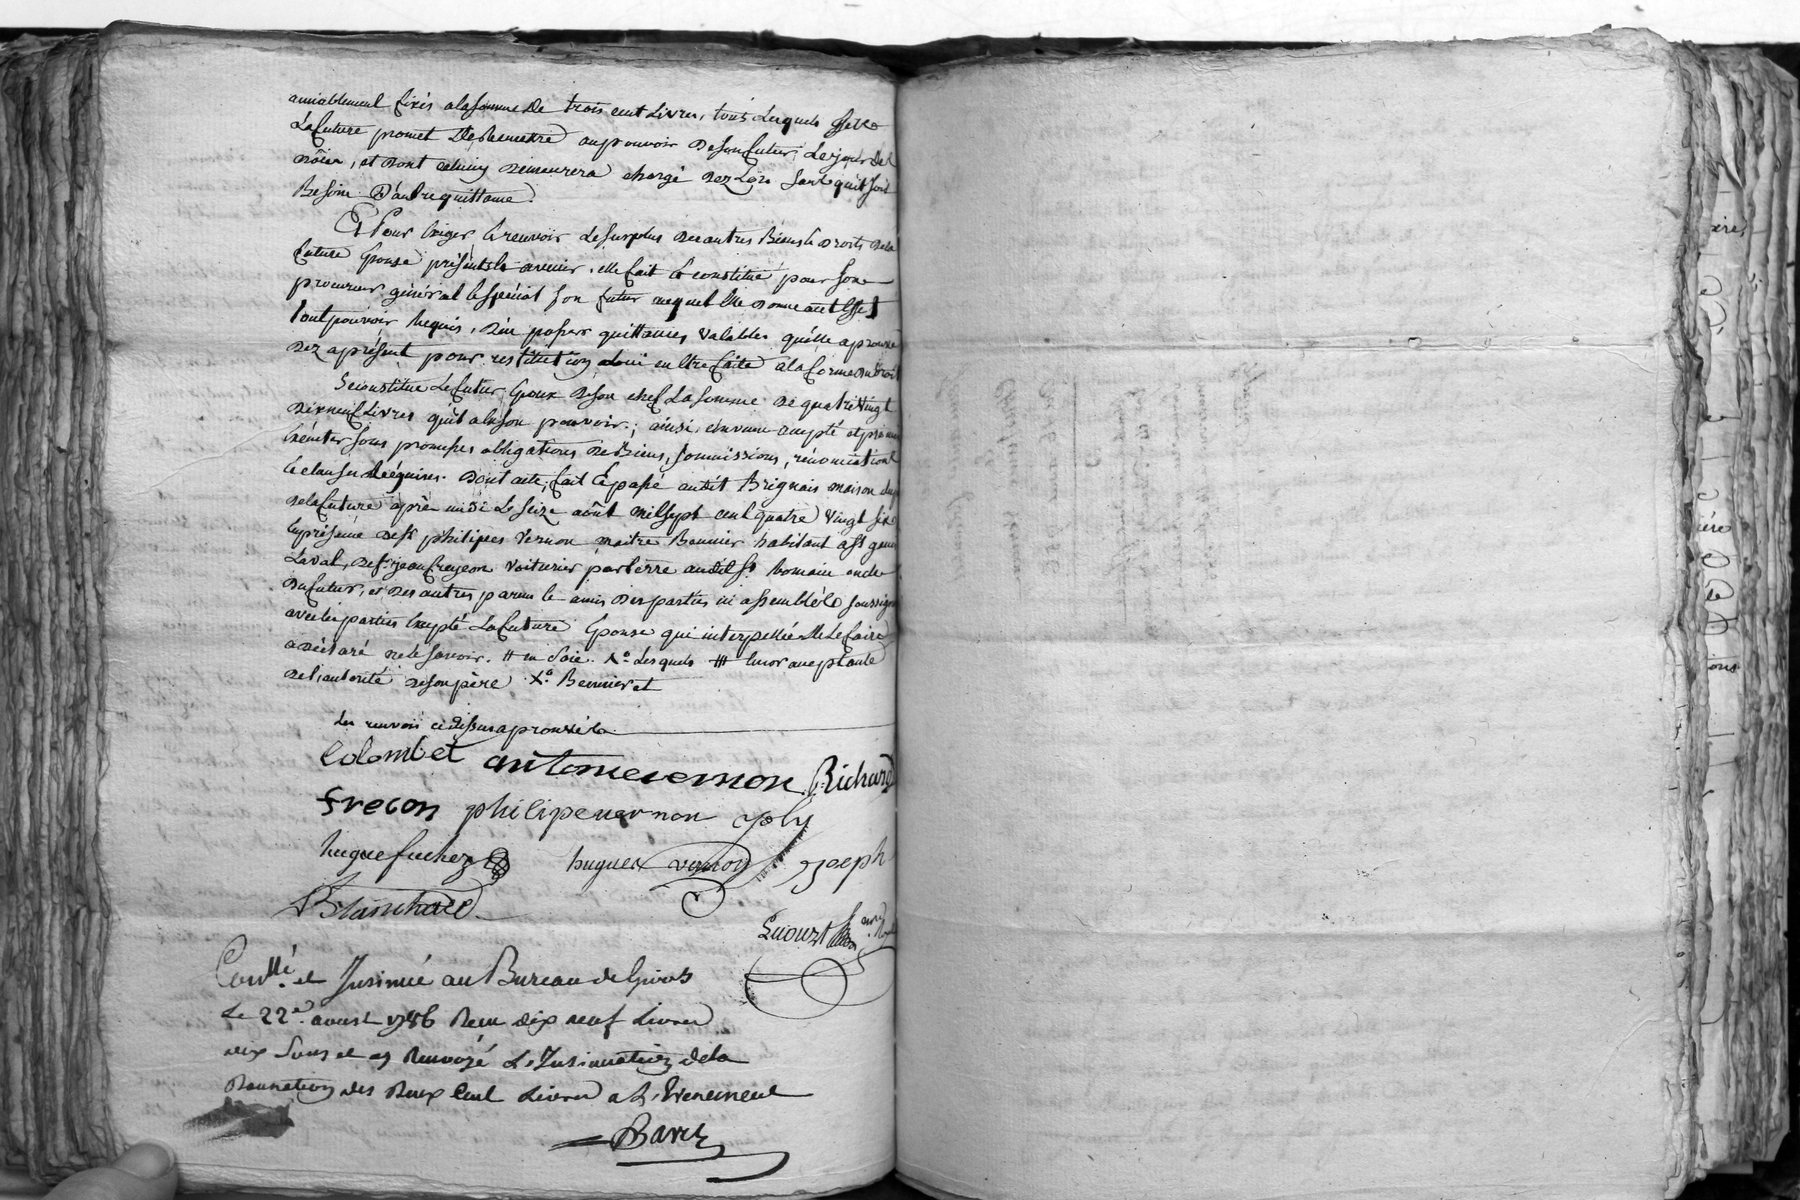 amiablement fixés a la somme De trois cent Livres, tous Lesquels effets
La future promet De Remettre au pouvoir De son futur, Le jour de
nôces, et Dont celuy cy Demeurera chargé Dez Lors sans qu'il soit
Besoin D'autre quittance.
Et Pour Exiger & recevoir Le surplus Des autres Biens & Droits De la
future Epouse présents & avenir, elle fait & constitue pour son
procureur général & spécial son futur auquel Elle Donne a cet effet
Tout pouvoir Requis, D'en passer quittances valables qu'elle aprouve
Dez aprésent pour restitution luy en Etre faite a la forme Du Droit
Se constitue Le futur Epoux De son chef La somme De quatre Vingt
Dix neuf Livres qu'il a En son pouvoir; ainsi convenu accepté et promis
Exécuter sous promesses obligations De Biens, soumissions, rénonciations
& clauses Requises. Dont acte, fait & passé audit Brignais maison du père
De la future après midi Le seize août mil sept cent quatre vingt six
En présence De sr philipes Vernon maitre Bannier habitant a st genis
Laval, De sr jean freyeon Voiturier par terre audit st Romain oncle
Du futur, et Des autres parens & amis Des parties ici assemblés & soussignés
avec les parties Excepté La future Epouse qui interpellée De Le faire
a Déclaré ne le savoir. # en soie. X° Lesquels ## mineur acceptante
De l'autorité De son père X° Bannier et
Les renvois ci dessus aprouvés &
Colombet antoine vernon Richard
frecon philipe vernon Joly
hugue fuchez hugues vernon Joseph
Blanchard
Coll.é et Insinué au Bureau de Givors
Le 22.e aoust 1786 Reçu dix neuf Livres
dix sous et ay Renvoyé L'Insinuation de la
Donnation des Deux Cent Livres a L'Evenement
Barry